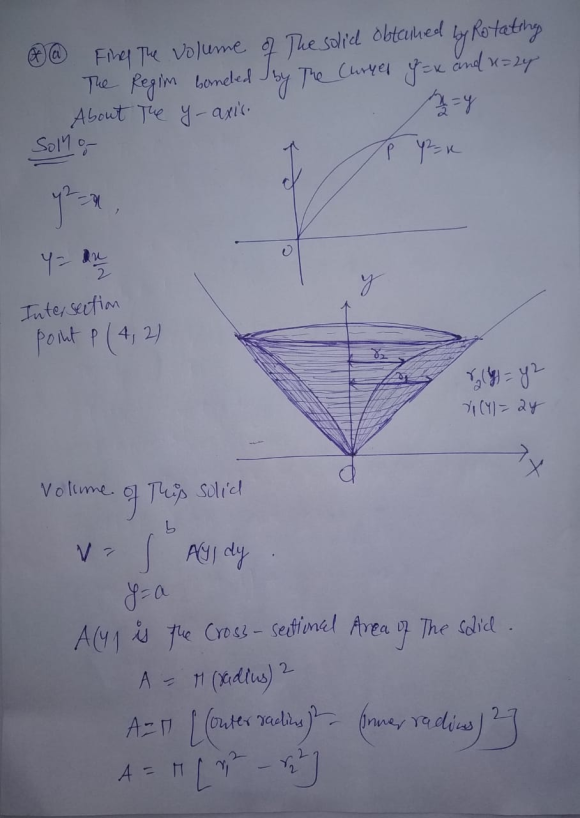 * a Find The Volume of The solid obtained by Rotating
The Region bounded by The Curves y²=x and x=2y
About The y-axis.
Solⁿ :-
x/2 = y
P y²=x
O
y² = x,
y = x/2
Intersection
point P (4, 2)
y
r₂
r₁
r₂(y) = y²
r₁(y) = 2y
O
X
Volume of This solid
V = ∫_{y=a}^{b} A(y) dy.
A(y) is The Cross-sectional Area of The solid.
A = π (radius)²
A = π [(outer radius)² - (inner radius)²]
A = π [r₁² - r₂²]